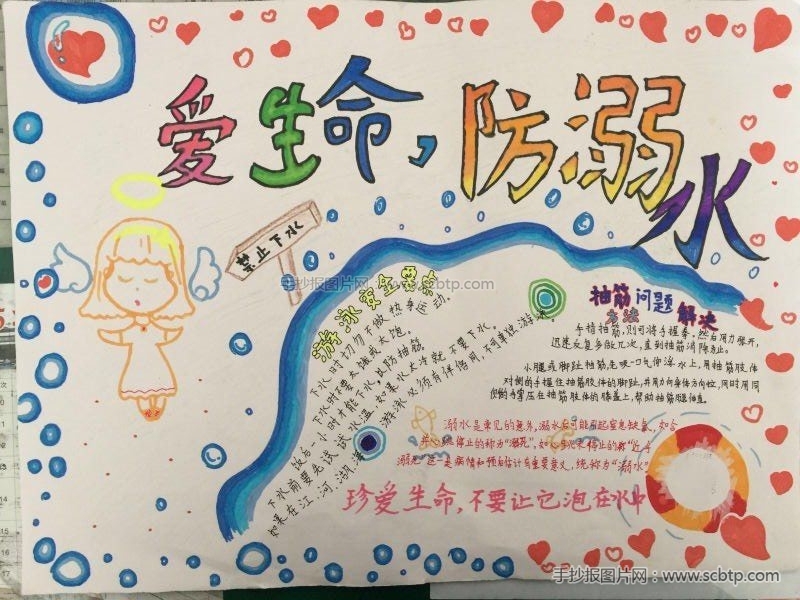 爱生命,防溺水
禁止下水
手抄报图片网:www.scbtp.com
游泳安全要教
下水时切勿不做热身运动。
下水时不要太饿或太饱。
饭后一小时才能下水以防抽筋。
下水前要先试试水温,如果水太冷就不要下水。
如果在江、河、湖、海游泳必须有伴偕同,不可单独游泳。
抽筋问题
解决
方法
手指抽筋,则可将手握拳,然后用力张开,
迅速反复多做几次,直到抽筋消除为止。
小腿或脚趾抽筋,先吸一口气仰浮水上,用抽筋肢体
对侧的手握住抽筋肢体的脚趾,并用力向身体方向拉,同时用同
侧的手掌压在抽筋肢体的膝盖上,帮助抽筋腿伸直。
溺水是常见的意外,溺水后可引起窒息缺氧,如合
并心跳停止的称为“溺死”,如心跳未停止的称“近乎
溺死”这一是病情和预后估计有重要意义,统称为“溺水”
珍爱生命,不要让它泡在水中
手抄报图片网:www.scbtp.com